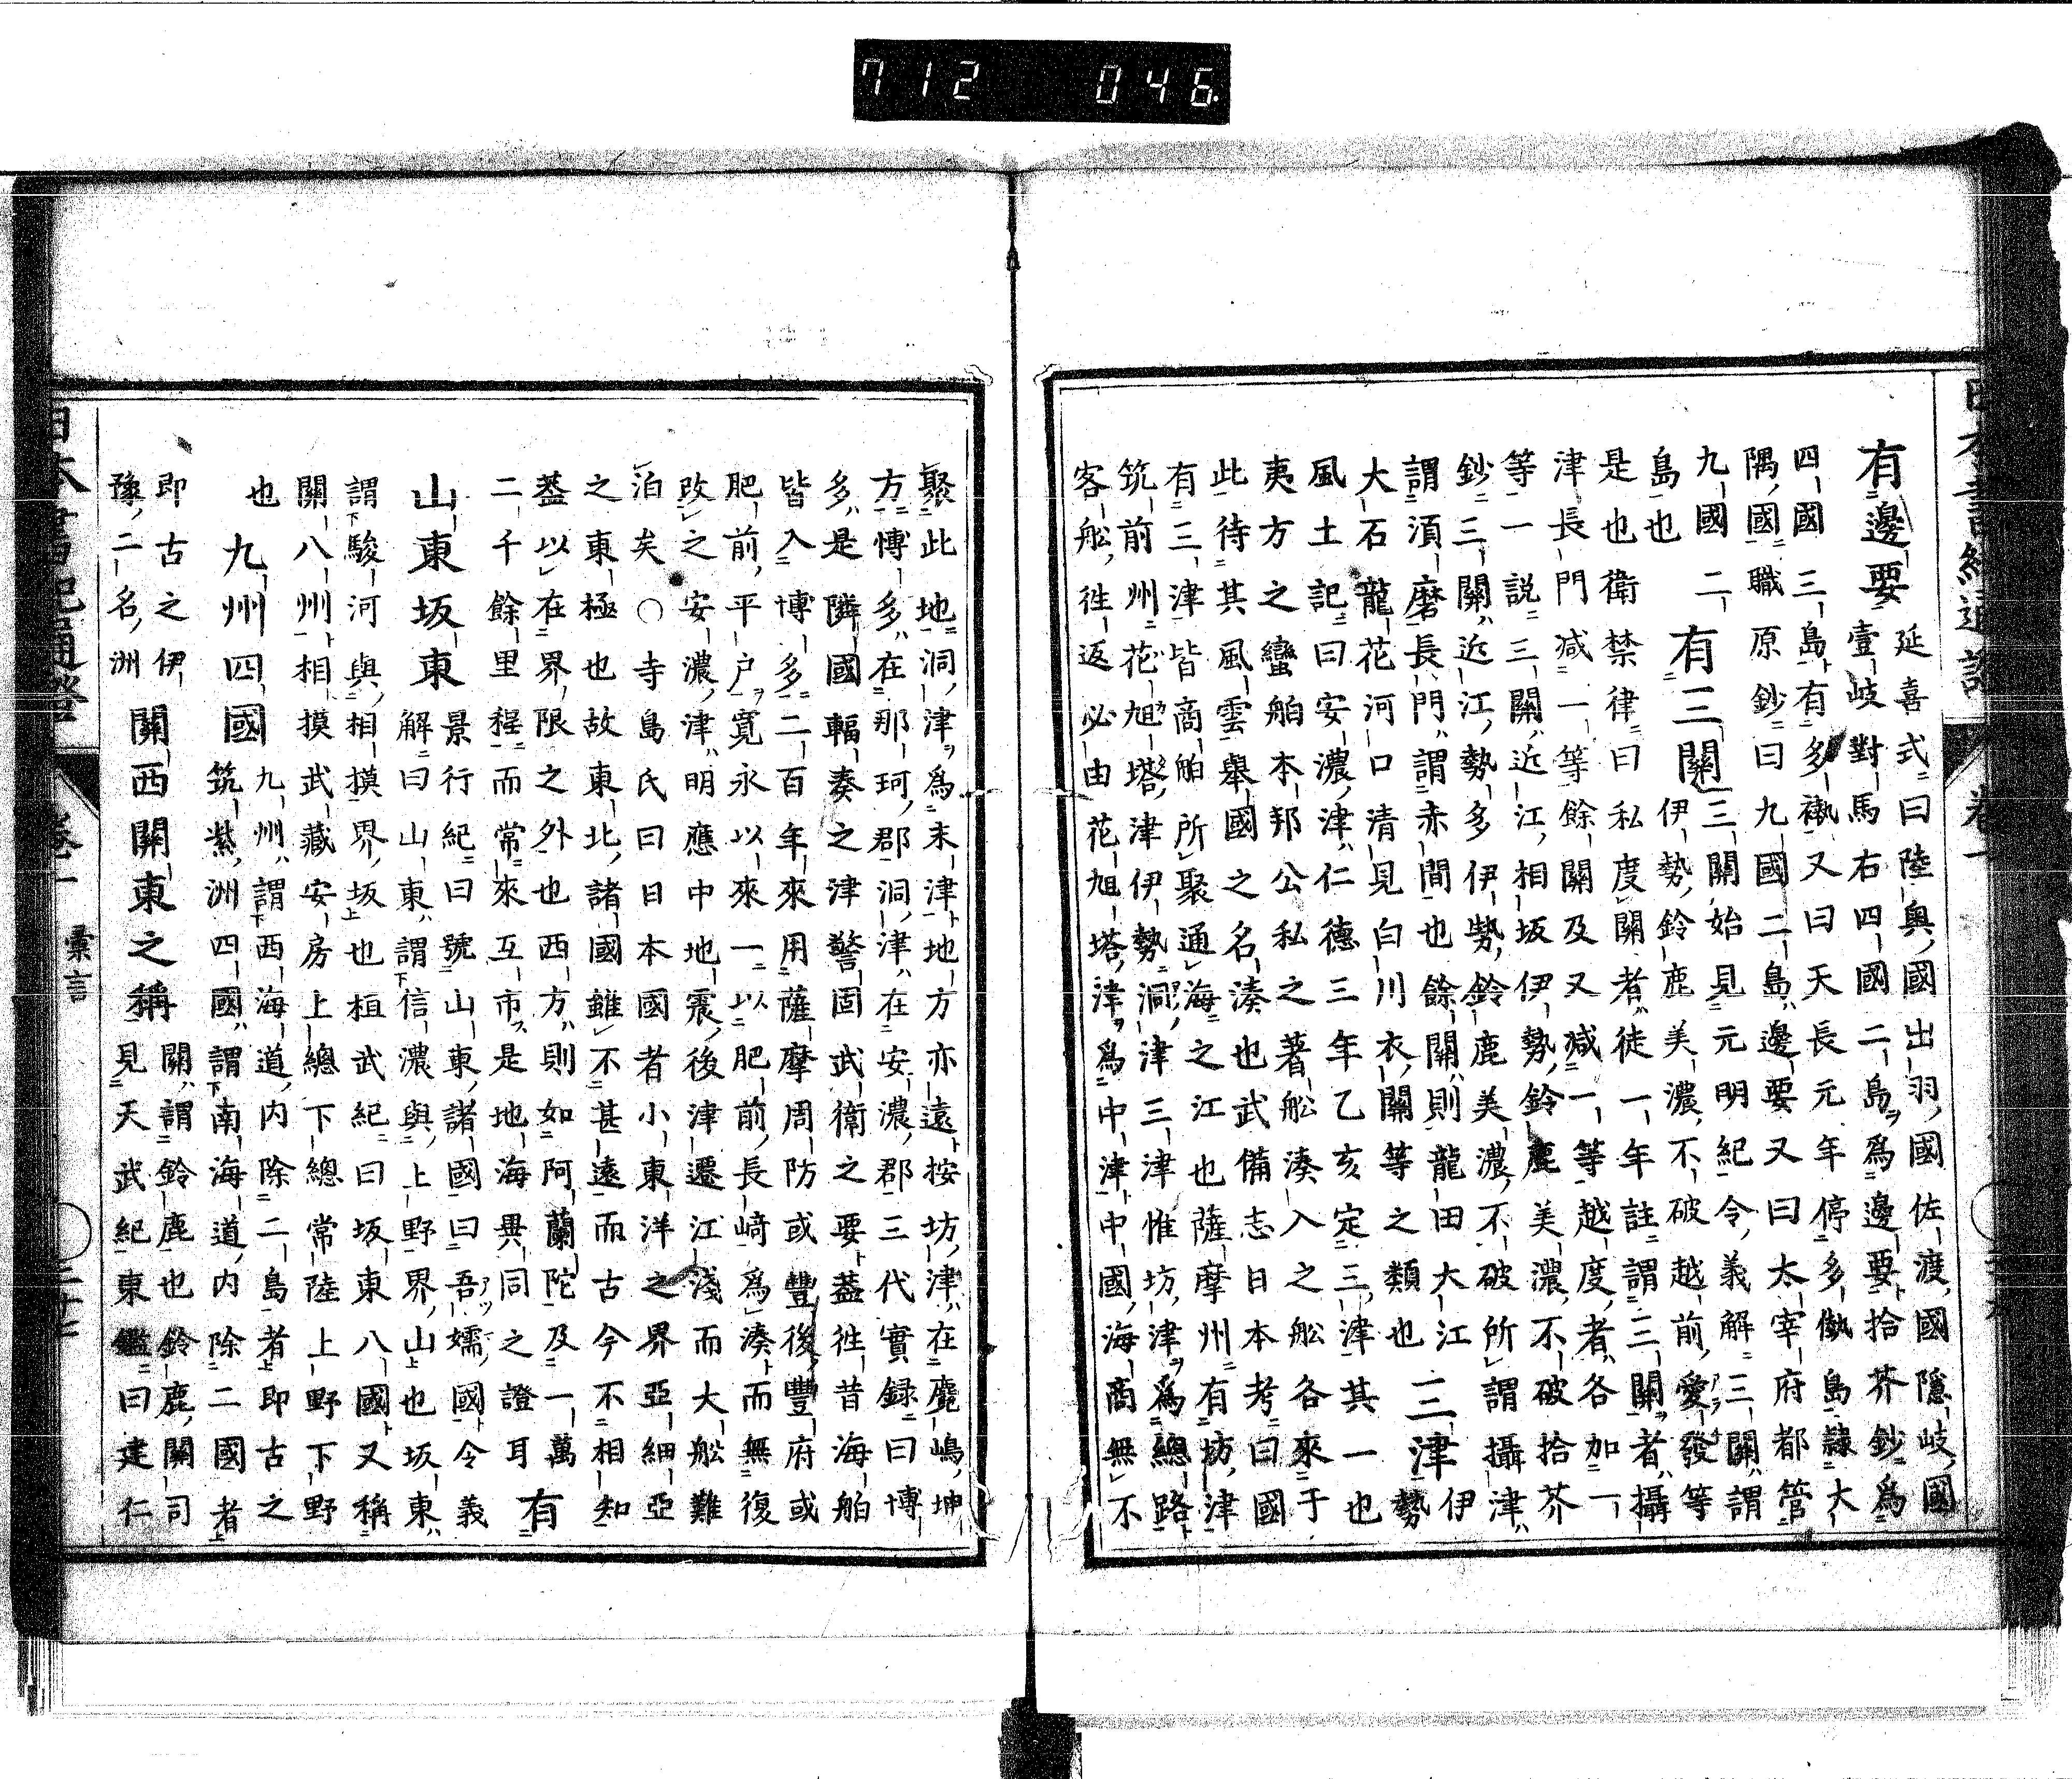 有邊要
延喜式曰陸奥國出羽國佐渡國隱岐國
壹岐對馬右四國二島ヲ爲邊要拾芥鈔爲
四國三島有多褹又曰天長元年停多褹島隷大
隅國職原鈔曰九國二島邊要又曰太宰府都管
九國二
島也
有三關
三關始見元明紀令義解三關謂
伊勢鈴鹿美濃不破越前愛發等
是也衛禁律曰私度關者徒一年註謂三關者攝
津長門減一等餘關及又減一等越度者各加一
等一說三關近江相坂伊勢鈴鹿美濃不破拾芥
鈔三關近江勢多伊勢鈴鹿美濃不破所謂攝津
謂湏磨長門謂赤間也餘關則龍田大江
大石龍花河口清見白川衣關等之類也
三津
伊
勢
風土記曰安濃津仁德三年乙亥定三津其一也
夷方之蠻舶本邦公私之著舩湊入之舩各來于
此待其風雲舉國之名湊也武備志日本考曰國
有三津皆商舶所聚通海之江也薩摩州有坊津
筑前州花旭塔津伊勢洞津三津惟坊津爲總路
客舩徃返必由花旭塔津爲中津中國海商無不
聚此地洞津爲末津地方亦遠按坊津在麑嶋坤
方博多在那珂郡洞津在安濃郡三代實録曰博
多是隣國輻湊之津警固武衛之要葢徃昔海舶
皆入博多二百年來用薩摩周防或豐後豐府或
肥前平户寛永以來一以肥前長﨑爲湊而無復
改之安濃津明應中地震後津遷江淺而大舩難
泊矣○寺島氏曰日本國者小東洋之界亞細亞
之東極也故東北諸國雖不甚遠而古今不相知
葢以在界限之外也西方則如阿蘭陀及一萬
二千餘里程而常來互市是地海異同之證耳
有
山東坂東
景行紀曰號山東諸國曰吾嬬國令義
解曰山東謂信濃與上野界山也坂東
謂駿河與相摸界坂也桓武紀曰坂東八國又稱
關八州相摸武藏安房上總下總常陸上野下野
也
九州四國
九州謂西海道内除二島者即古之
筑紫洲四國謂南海道内除二國者
即古之伊
豫二名洲
關西關東之稱
關謂鈴鹿也鈴鹿關司
見天武紀東鑑曰建仁
日本書紀通證
卷一
彙言
三十七
712 046